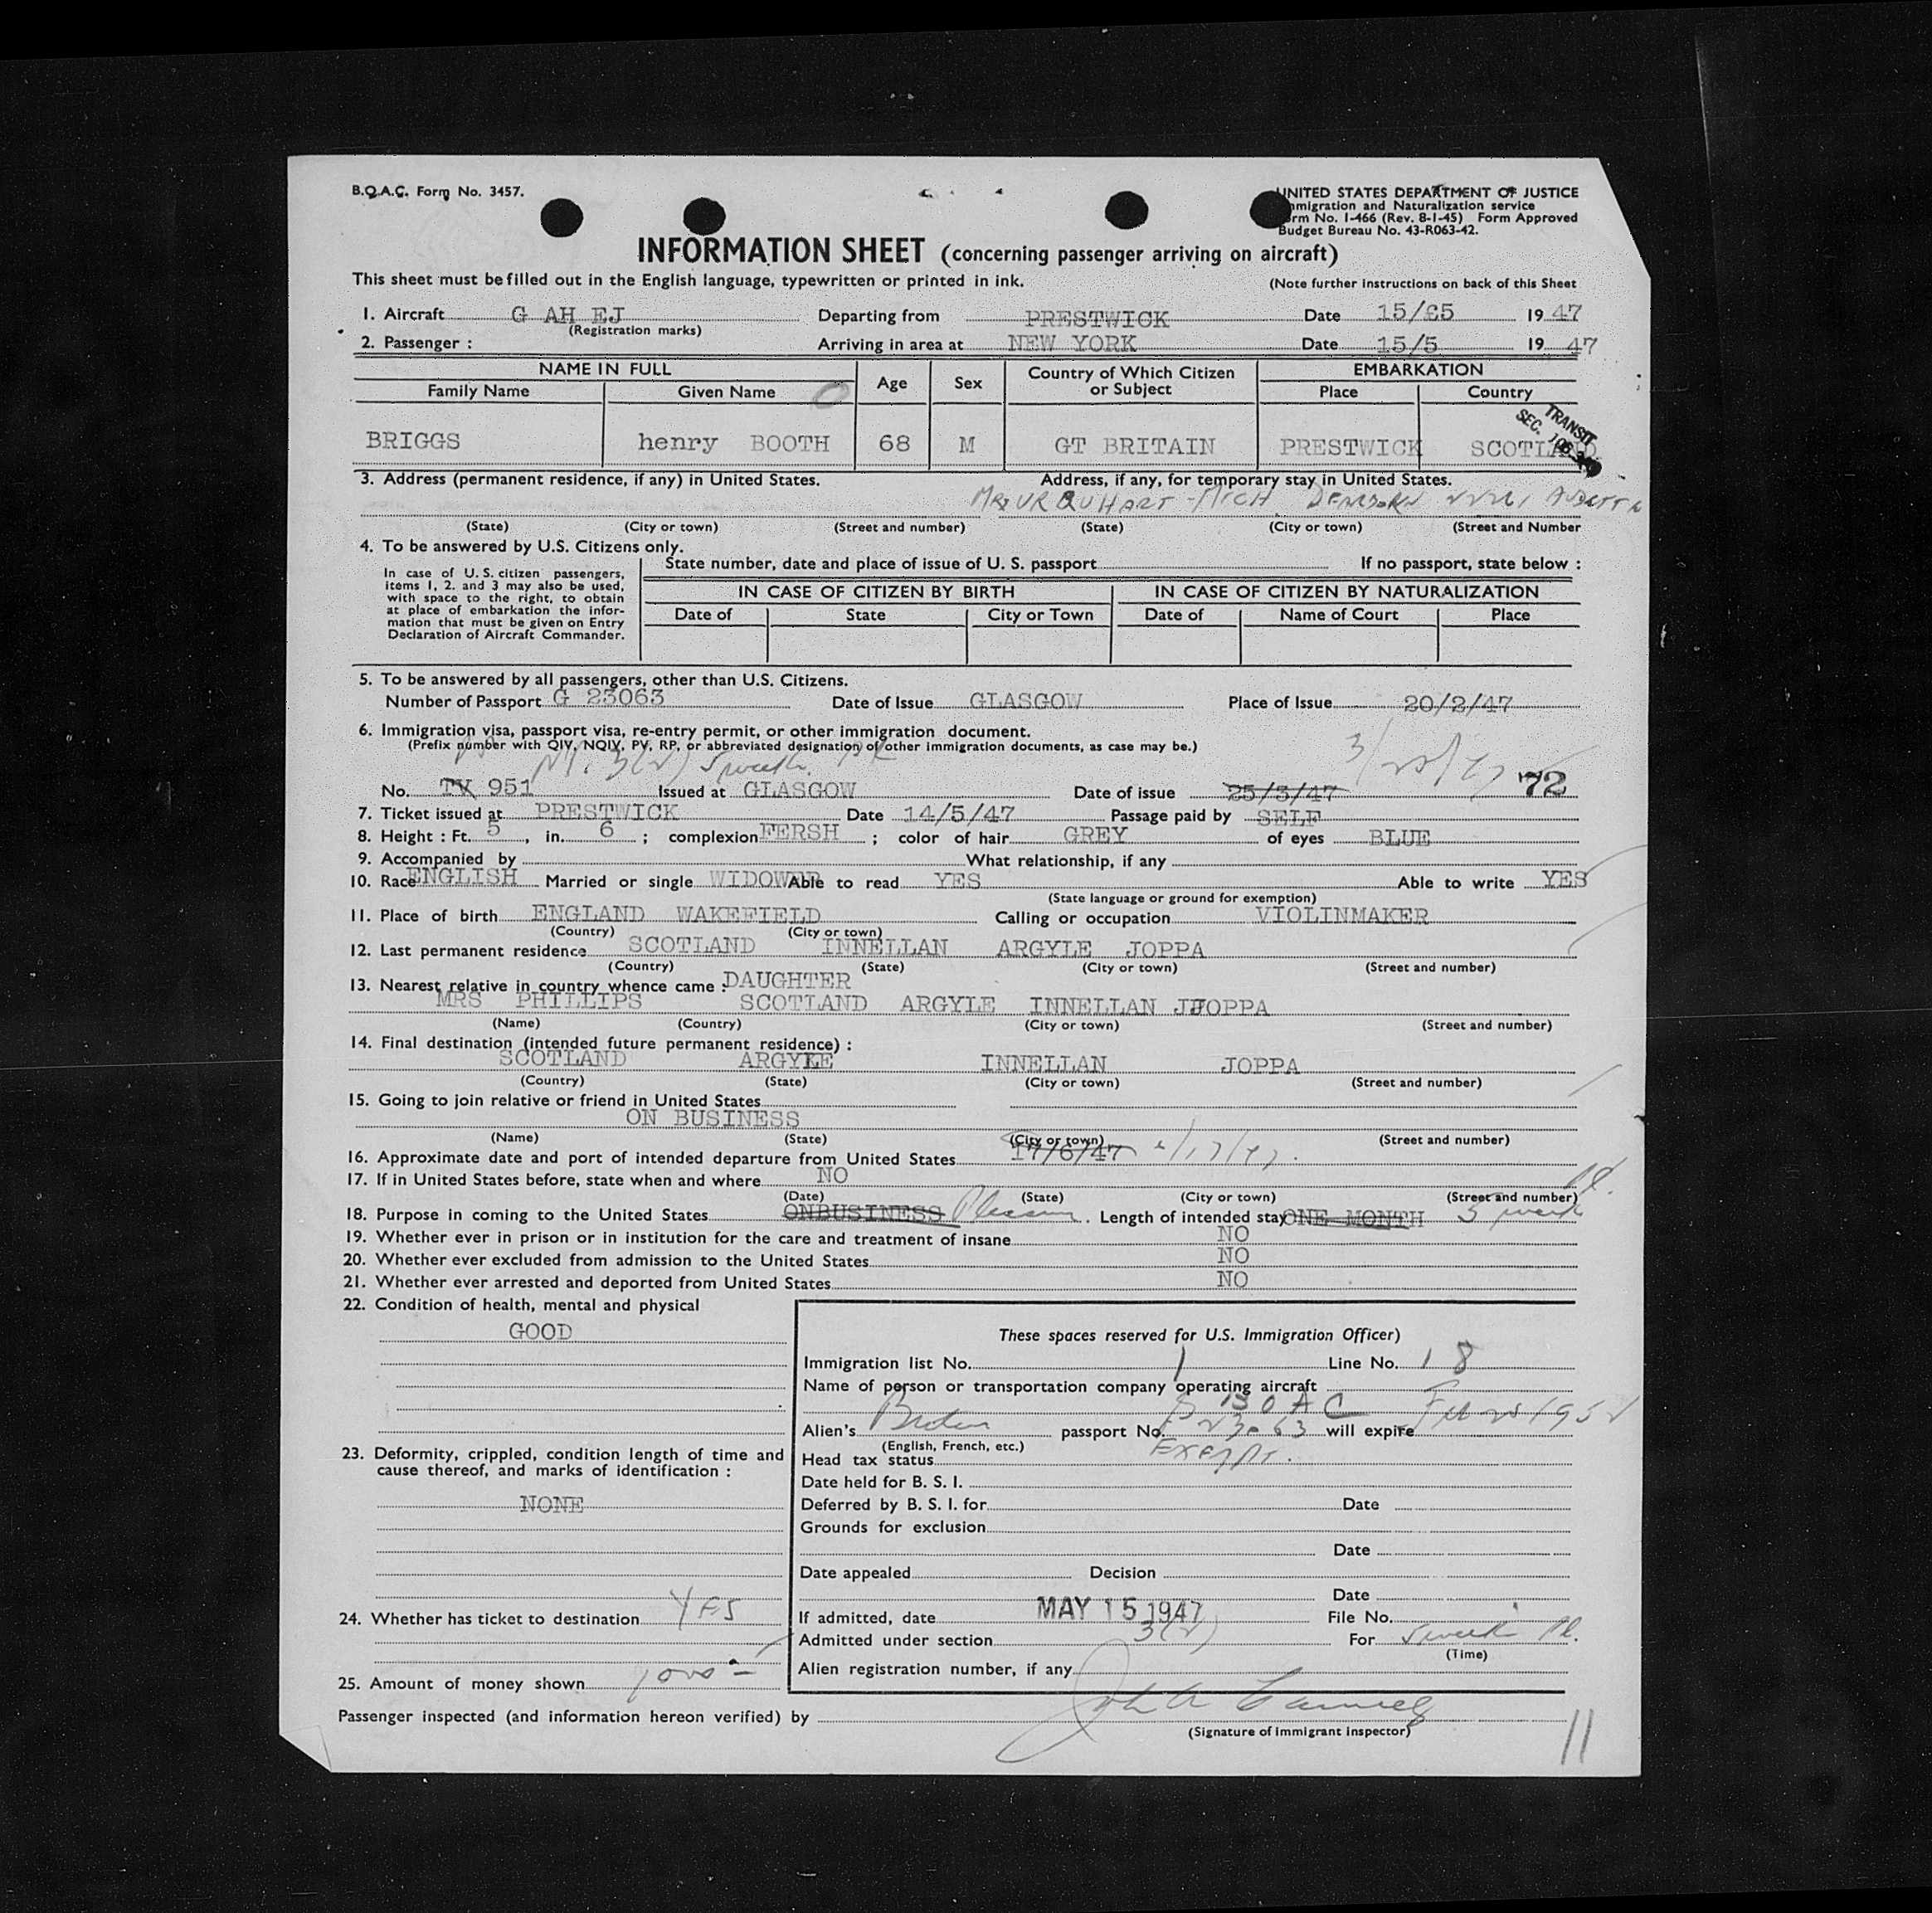 B.O.A.C. Form No. 3457.
UNITED STATES DEPARTMENT OF JUSTICE
mmigration and Naturalization service
rm No. I-466 (Rev. 8-1-45) Form Approved
Budget Bureau No. 43-R063-42.
INFORMATION SHEET (concerning passenger arriving on aircraft)
This sheet must be filled out in the English language, typewritten or printed in ink. (Note further instructions on back of this Sheet
1. Aircraft G AH EJ Departing from PRESTWICK Date 15/£5 19 47
(Registration marks)
2. Passenger : Arriving in area at NEW YORK Date 15/5 19 47
NAME IN FULL Age Sex Country of Which Citizen or Subject EMBARKATION
Family Name Given Name Place Country
TRANSIT
SEC.
BRIGGS henry BOOTH 68 M GT BRITAIN PRESTWICK SCOTLAND
3. Address (permanent residence, if any) in United States. Address, if any, for temporary stay in United States.
MR URQUHART - MICH
(State) (City or town) (Street and number) (State) (City or town) (Street and Number
4. To be answered by U.S. Citizens only.
In case of U.S. citizen passengers,
items 1, 2. and 3 may also be used,
with space to the right, to obtain
at place of embarkation the infor-
mation that must be given on Entry
Declaration of Aircraft Commander.
State number, date and place of issue of U. S. passport If no passport, state below :
IN CASE OF CITIZEN BY BIRTH IN CASE OF CITIZEN BY NATURALIZATION
Date of State City or Town Date of Name of Court Place
5. To be answered by all passengers, other than U.S. Citizens.
Number of Passport G 23063 Date of Issue GLASGOW Place of Issue 20/2/47
6. Immigration visa, passport visa, re-entry permit, or other immigration document.
(Prefix number with QIV, NQIV, PV, RP, or abbreviated designation of other immigration documents, as case may be.)
3(2)
No. TV 951 Issued at GLASGOW Date of issue 25/3/47 72
7. Ticket issued at PRESTWICK Date 14/5/47 Passage paid by SELF
8. Height : Ft. 5 , in. 6 ; complexion FERSH ; color of hair GREY of eyes BLUE
9. Accompanied by What relationship, if any
10. Race ENGLISH Married or single WIDOWER Able to read YES Able to write YES
(State language or ground for exemption)
11. Place of birth ENGLAND WAKEFIELD Calling or occupation VIOLINMAKER
(Country) (City or town)
12. Last permanent residence SCOTLAND INNELLAN ARGYLE JOPPA
(Country) (State) (City or town) (Street and number)
13. Nearest relative in country whence came : DAUGHTER
MRS PHILLIPS SCOTLAND ARGYLE INNELLAN JJOPPA
(Name) (Country) (City or town) (Street and number)
14. Final destination (intended future permanent residence) :
SCOTLAND ARGYLE INNELLAN JOPPA
(Country) (State) (City or town) (Street and number)
15. Going to join relative or friend in United States
ON BUSINESS
(Name) (State) (City or town) (Street and number)
16. Approximate date and port of intended departure from United States 17/6/47
17. If in United States before, state when and where NO
(Date) (State) (City or town) (Street and number)
18. Purpose in coming to the United States ONBUSINESS Pleasure. Length of intended stay ONE MONTH 5 weeks
19. Whether ever in prison or in institution for the care and treatment of insane NO
20. Whether ever excluded from admission to the United States NO
21. Whether ever arrested and deported from United States NO
22. Condition of health, mental and physical
GOOD
23. Deformity, crippled, condition length of time and
cause thereof, and marks of identification :
NONE
24. Whether has ticket to destination YES
25. Amount of money shown
These spaces reserved for U.S. Immigration Officer)
Immigration list No. 1 Line No. 18
Name of person or transportation company operating aircraft
BOAC
Alien's passport No. 23063 will expire Feb 20 1952
(English, French, etc.)
Head tax status Exempt.
Date held for B. S. I.
Deferred by B. S. I. for Date
Grounds for exclusion
Date
Date appealed Decision
Date
If admitted, date MAY 15 1947 File No.
Admitted under section 3(2) For 5 weeks Pl.
(Time)
Alien registration number, if any
Passenger inspected (and information hereon verified) by
(Signature of Immigrant Inspector)
11